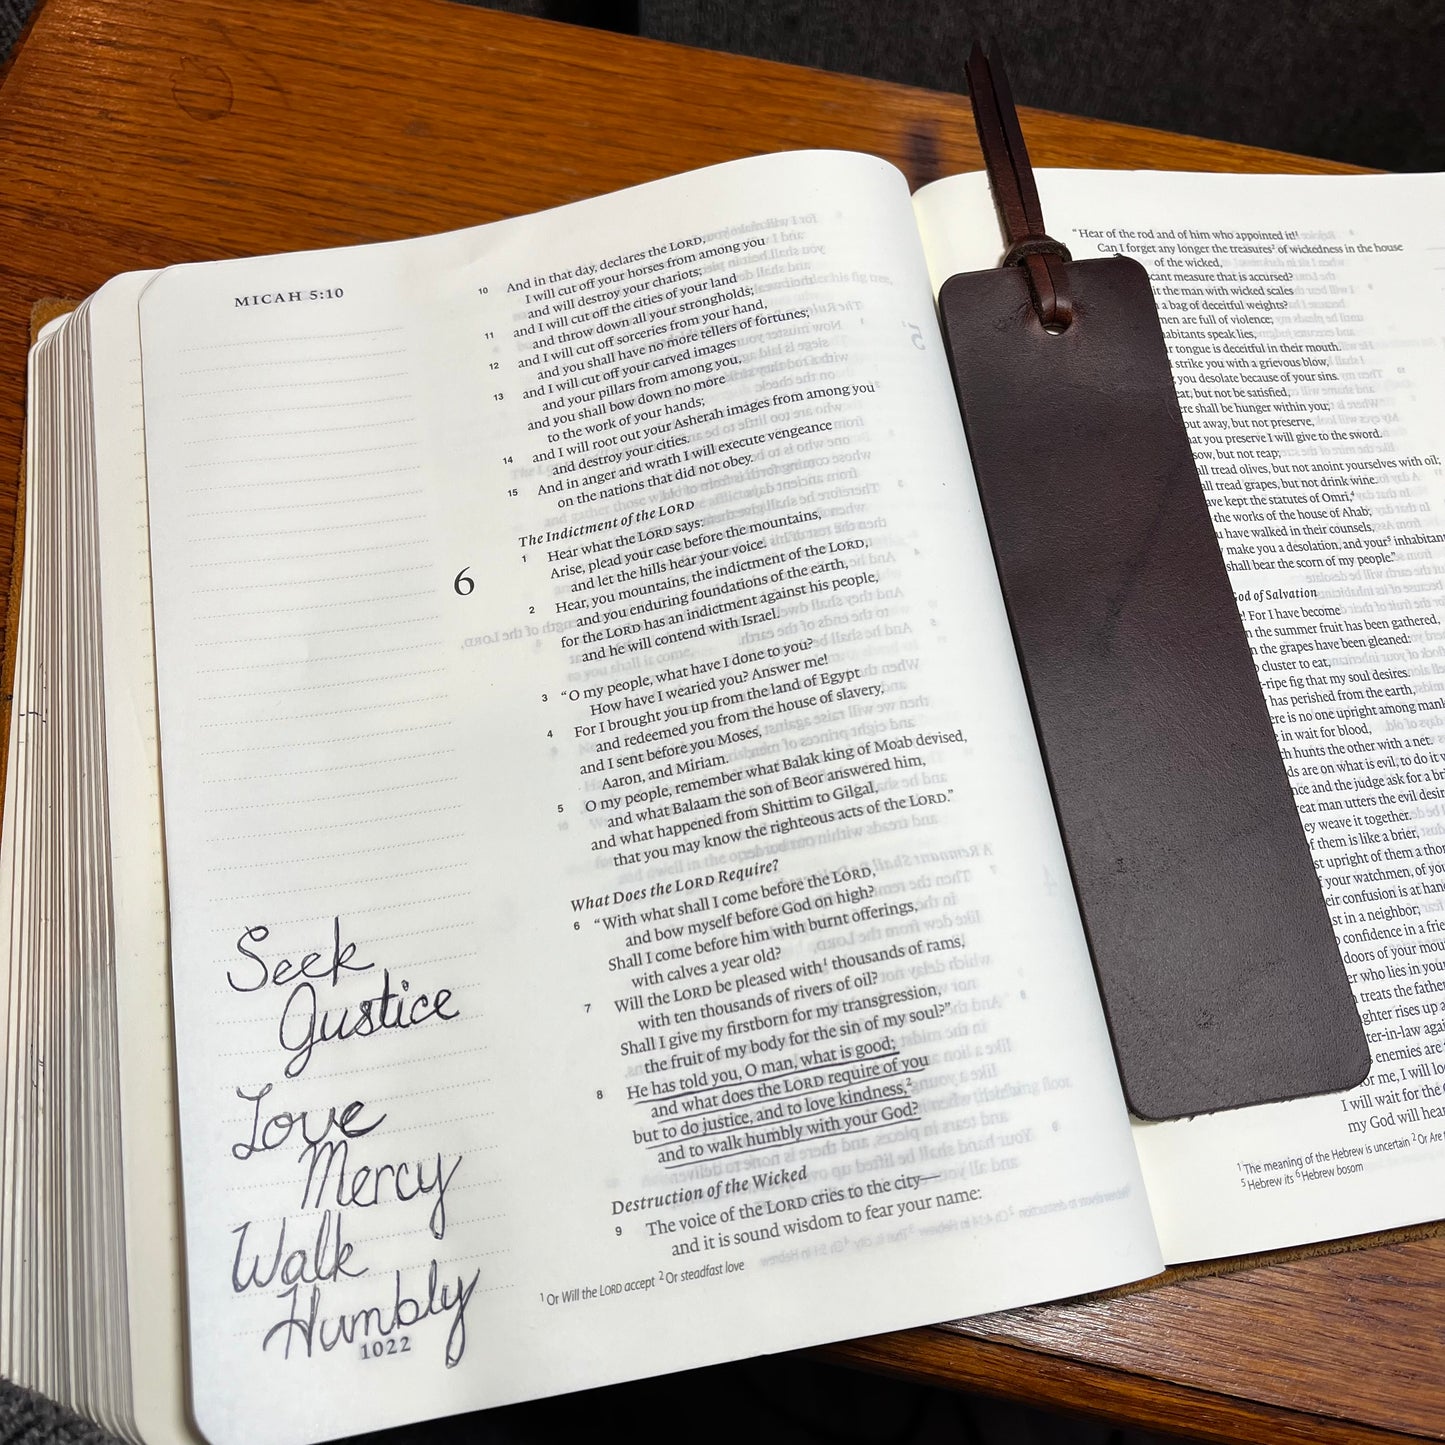 MICAH 5:10
10 And in that day, declares the LORD,
I will cut off your horses from among you
and will destroy your chariots;
11 and I will cut off the cities of your land
and throw down all your strongholds;
12 and I will cut off sorceries from your hand,
and you shall have no more tellers of fortunes;
13 and I will cut off your carved images
and your pillars from among you,
and you shall bow down no more
to the work of your hands;
14 and I will root out your Asherah images from among you
and destroy your cities.
15 And in anger and wrath I will execute vengeance
on the nations that did not obey.
The Indictment of the LORD
6
1 Hear what the LORD says:
Arise, plead your case before the mountains,
and let the hills hear your voice.
2 Hear, you mountains, the indictment of the LORD,
and you enduring foundations of the earth,
for the LORD has an indictment against his people,
and he will contend with Israel.
3 “O my people, what have I done to you?
How have I wearied you? Answer me!
4 For I brought you up from the land of Egypt
and redeemed you from the house of slavery,
and I sent before you Moses,
Aaron, and Miriam.
5 O my people, remember what Balak king of Moab devised,
and what Balaam the son of Beor answered him,
and what happened from Shittim to Gilgal,
that you may know the righteous acts of the LORD.”
What Does the LORD Require?
6 “With what shall I come before the LORD,
and bow myself before God on high?
Shall I come before him with burnt offerings,
with calves a year old?
7 Will the LORD be pleased with¹ thousands of rams,
with ten thousands of rivers of oil?
Shall I give my firstborn for my transgression,
the fruit of my body for the sin of my soul?”
8 He has told you, O man, what is good;
and what does the LORD require of you
but to do justice, and to love kindness,²
and to walk humbly with your God?
Destruction of the Wicked
9 The voice of the LORD cries to the city—
and it is sound wisdom to fear your name:
¹ Or Will the LORD accept ² Or steadfast love
Seek
Justice
Love
Mercy
Walk
Humbly
1022
“Hear of the rod and of him who appointed it!
Can I forget any longer the treasures² of wickedness in the house
of the wicked,
measure that is accursed?
the man with wicked scales
a bag of deceitful weights?
are full of violence;
speak lies,
tongue is deceitful in their mouth.
strike you with a grievous blow,
you desolate because of your sins.
but not be satisfied,
shall be hunger within you;
away, but not preserve,
you preserve I will give to the sword.
but not reap;
tread olives, but not anoint yourselves with oil;
tread grapes, but not drink wine.
kept the statutes of Omri,⁴
the works of the house of Ahab;
have walked in their counsels,
make you a desolation, and your⁵
shall bear the scorn of my people.”
of Salvation
For I have become
the summer fruit has been gathered,
the grapes have been gleaned:
cluster to eat,
fig that my soul desires.
has perished from the earth,
is no one upright among
in wait for blood,
hunts the other with a net.
are on what is evil, to do it
and the judge ask for a
man utters the evil
weave it together.
of them is like a brier,
upright of them a
your watchmen, of
confusion is at
in a neighbor;
confidence in a
doors of your
who lies in your
treats the
rises up
enemies are
for me, I will
I will wait for the
my God will
¹ The meaning of the Hebrew is uncertain ² Or Are
⁵ Hebrew its ⁶ Hebrew bosom